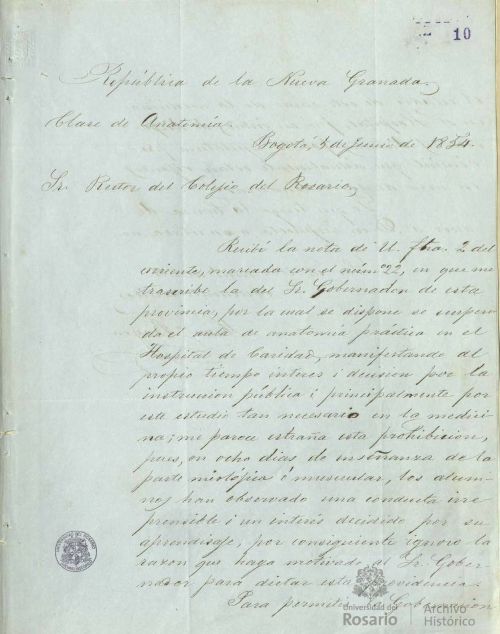 10
República de la Nueva Granada
Clase de Anatomía
Bogotá, 3 de Junio de 1854.
Sr. Rector del Colejio del Rosario,
Recibí la nota de U. fha. 2 del
corriente, marcada con el núm.º 22, en que me
transcribe la del Sr. Gobernador de esta
provincia, por la cual se dispone se suspen-
da el aula de anatomía práctica en el
Hospital de Caridad, manifestando al
propio tiempo interes i decision por la
instruccion pública i principalmente por
este estudio tan necesario en la medici-
na; me parece estraña esta prohibicion,
pues, en ocho dias de enseñanza de la
parte miolójica ó muscular, los alum-
nos han observado una conducta irre
prensible i un interés decidido por su
aprendisaje, por consiguiente ignoro la
razon que haya motivado al Sr. Gober-
nador para dictar esta providencia.
Para permitir la Gobernacion
Universidad del
Rosario
Archivo
Histórico